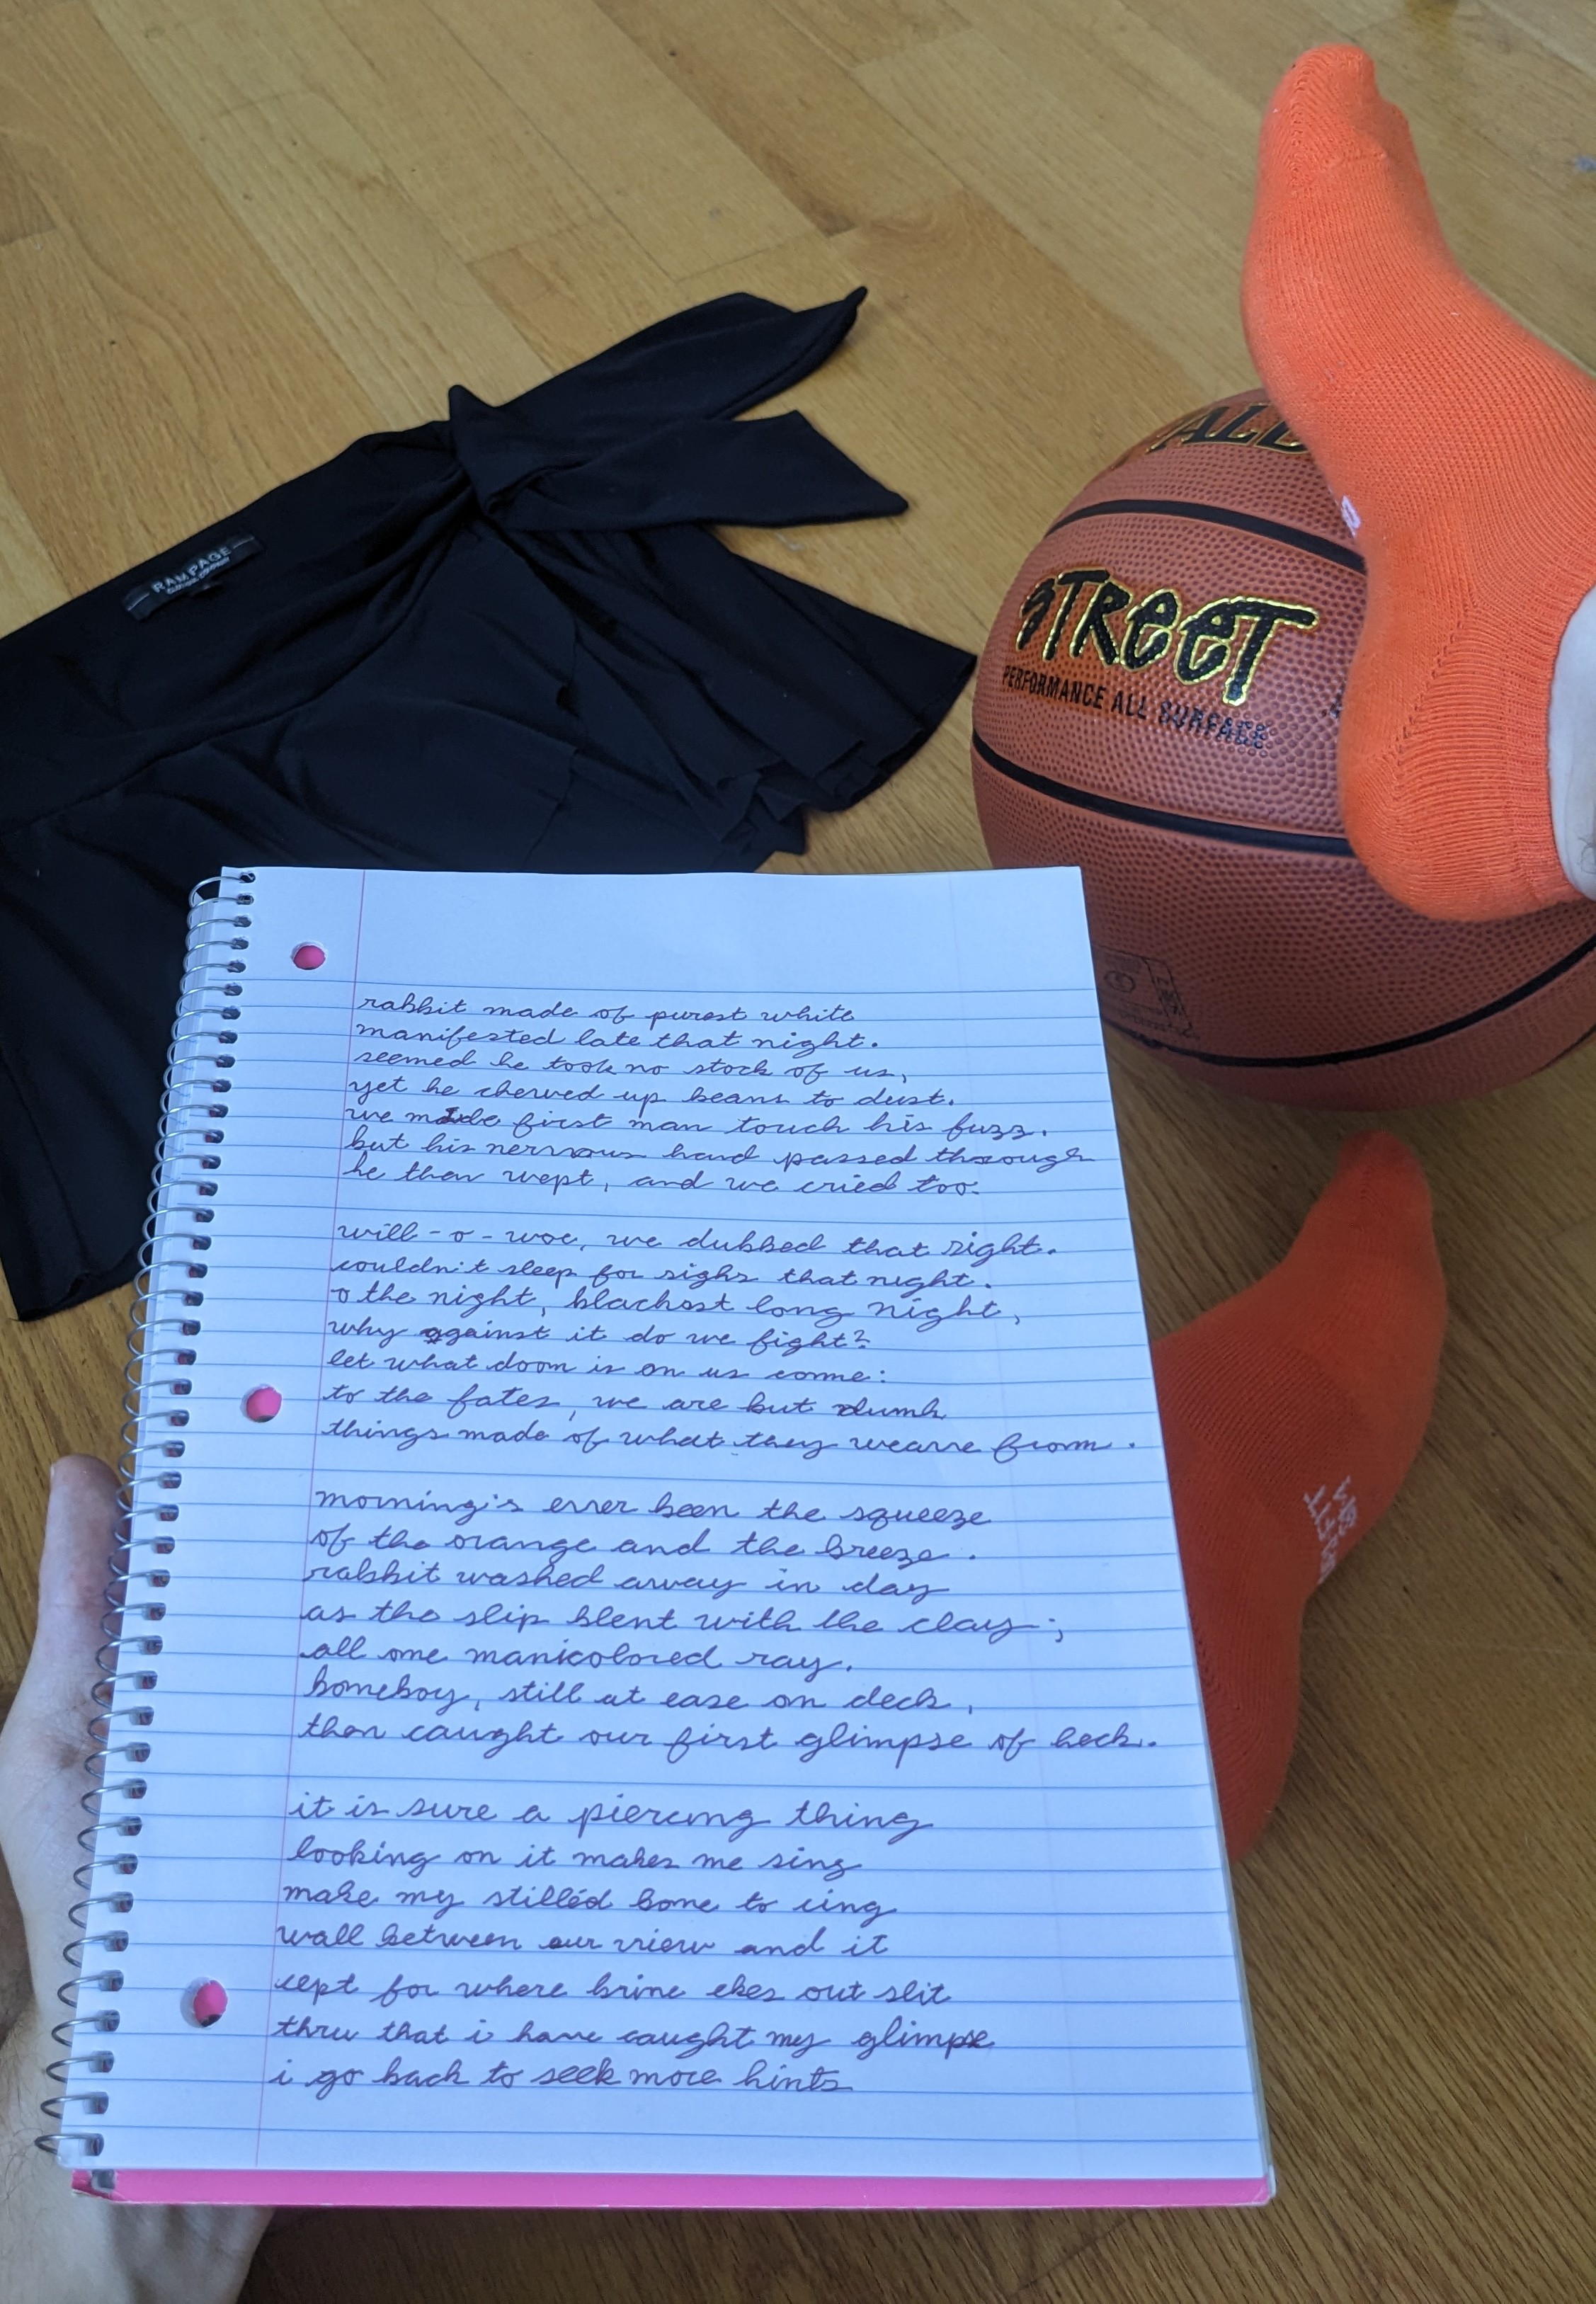 ALD
RAMPAGE
CLOTHING COMPANY
STREET
PERFORMANCE ALL SURFACES
rabbit made of purest white
manifested late that night.
seemed he took no stock of us,
yet he chewed up beans to dust.
we made first man touch his fuzz.
but his nervous hand passed through
he then wept, and we cried too.
will-o-woe, we dubbed that sight.
couldn't sleep for sighs that night.
o the night, blackest long night,
why against it do we fight?
let what doom is on us come:
to the fates, we are but dumb
things made of what they weave from.
morning's ever been the squeeze
of the orange and the breeze.
rabbit washed away in day
as the slip blent with the clay;
all one manicolored ray.
boneboy, still at ease on deck,
then caught our first glimpse of heck.
it is sure a piercing thing
looking on it makes me sing
make my stilléd bone to ring
wall between our view and it
cept for where brine ekes out slit
thru that i have caught my glimpse
i go back to seek more hints